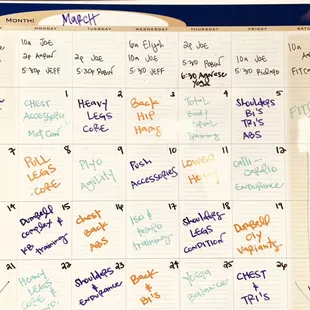 MONTH: MARCH
TUESDAY WEDNESDAY THURSDAY FRIDAY
10a Joe
2p Aaron
5:30p Jeff
2p Joe
5:30p Robin
6a Elijah
10a Joe
5:30 Jeff
2p Joe
5:30p Robin
6:30
Yoga
10a Joe
5:30
10a
FITC
1
CHEST
ACCESSORIES
MetCon
2
HEAVY
LEGS
CORE
3
Back
HIP
4
Total
Body
Training
5
Shoulders
Bi's
TRi's
ABS
FIT
7
8
PULL
LEGS
CORE
9
Plyo
Agility
10
Push
ACCESSORIES
11
LOWER
12
Cali-
Cardio
ENDURANCE
14
15
Dumbbell
Complex &
KB training
16
Chest
Back
ABS
17
Iso &
Tempo
training
18
Shoulders
LEGS
CONDITION
19
DUMBBELL
Variants
21
22
HEAVY
LEGS
CORE
23
Shoulders
&
ENDURANCE
24
Back
&
Bi's
25
YOGA
Balance
26
CHEST
&
TRi's